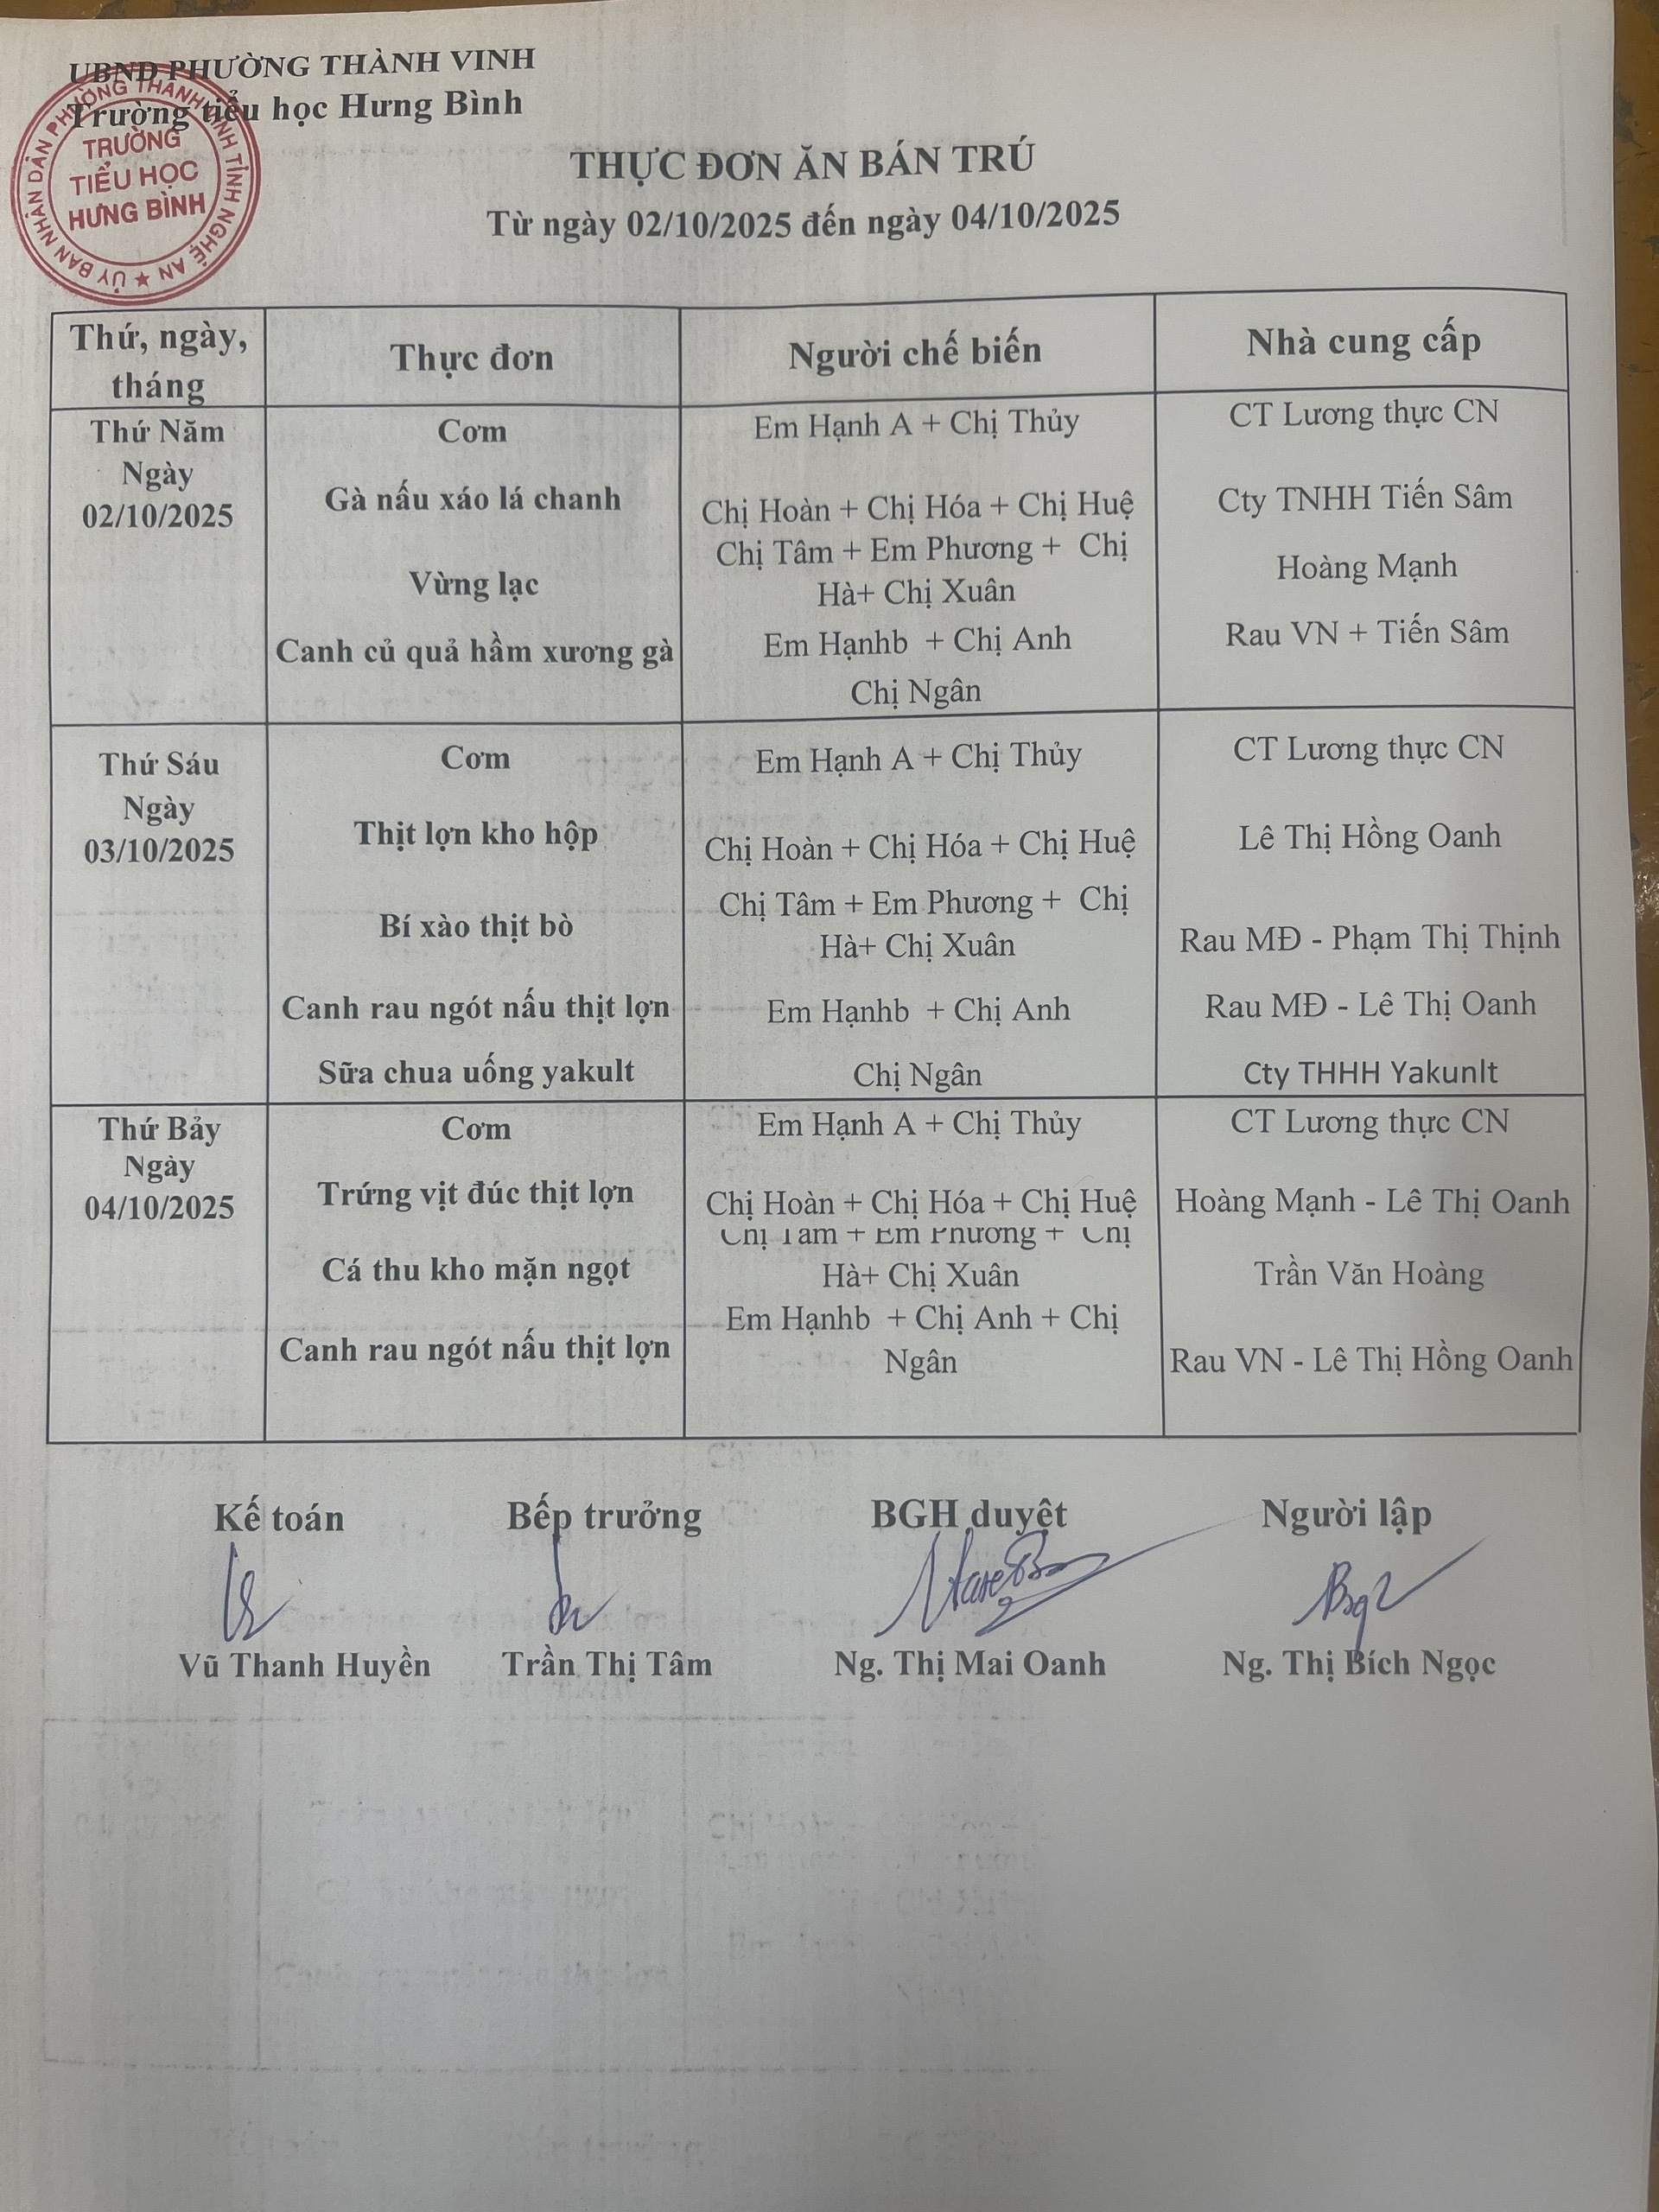 UBND PHƯỜNG THÀNH VINH
Trường tiểu học Hưng Bình
ỦY BAN NHÂN DÂN PHƯỜNG THÀNH VINH TỈNH NGHỆ AN
TRƯỜNG
TIỂU HỌC
HƯNG BÌNH
THỰC ĐƠN ĂN BÁN TRÚ
Từ ngày 02/10/2025 đến ngày 04/10/2025
Thứ, ngày, tháng
Thực đơn
Người chế biến
Nhà cung cấp
Thứ Năm
Ngày
02/10/2025
Cơm
Em Hạnh A + Chị Thủy
CT Lương thực CN
Gà nấu xáo lá chanh
Chị Hoàn + Chị Hóa + Chị Huệ
Cty TNHH Tiến Sâm
Vừng lạc
Chị Tâm + Em Phương + Chị
Hà+ Chị Xuân
Hoàng Mạnh
Canh củ quả hầm xương gà
Em Hạnhb + Chị Anh
Chị Ngân
Rau VN + Tiến Sâm
Thứ Sáu
Ngày
03/10/2025
Cơm
Em Hạnh A + Chị Thủy
CT Lương thực CN
Thịt lợn kho hộp
Chị Hoàn + Chị Hóa + Chị Huệ
Lê Thị Hồng Oanh
Bí xào thịt bò
Chị Tâm + Em Phương + Chị
Hà+ Chị Xuân
Rau MĐ - Phạm Thị Thịnh
Canh rau ngót nấu thịt lợn
Em Hạnhb + Chị Anh
Rau MĐ - Lê Thị Oanh
Sữa chua uống yakult
Chị Ngân
Cty THHH Yakunlt
Thứ Bảy
Ngày
04/10/2025
Cơm
Em Hạnh A + Chị Thủy
CT Lương thực CN
Trứng vịt đúc thịt lợn
Chị Hoàn + Chị Hóa + Chị Huệ
Hoàng Mạnh - Lê Thị Oanh
Cá thu kho mặn ngọt
Chị Tâm + Em Phương + Chị
Hà+ Chị Xuân
Trần Văn Hoàng
Canh rau ngót nấu thịt lợn
Em Hạnhb + Chị Anh + Chị
Ngân
Rau VN - Lê Thị Hồng Oanh
Kế toán
Bếp trưởng
BGH duyệt
Người lập
Vũ Thanh Huyền
Trần Thị Tâm
Ng. Thị Mai Oanh
Ng. Thị Bích Ngọc